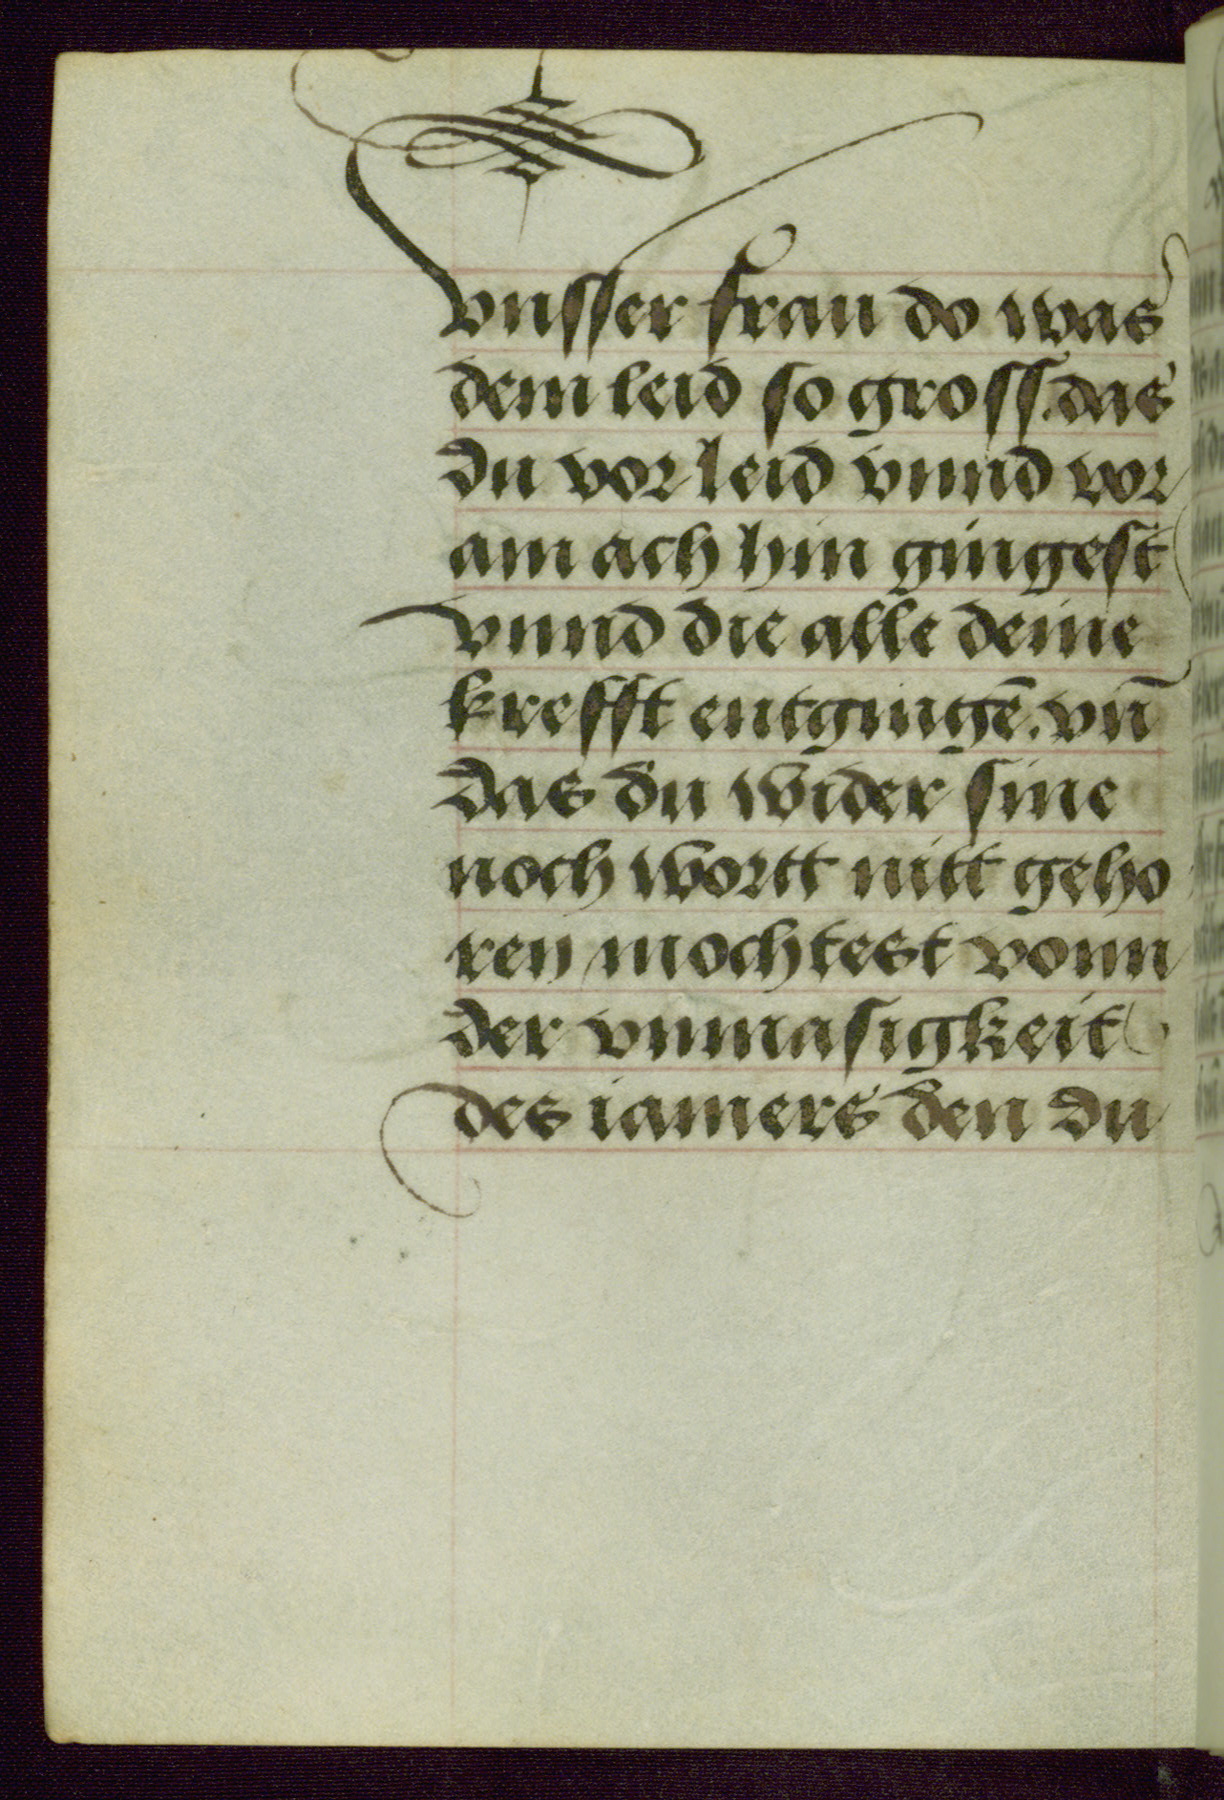 vnsser frau do was
dem leid so gross. das
du vor leid vnnd vor
am ach hin gingest
vnnd die alle deine
krefft entgingē. vn̄
das du wider sine
noch wortt nitt geho
ren mochtest vonn
der vnmasigkeit
des iamers den du